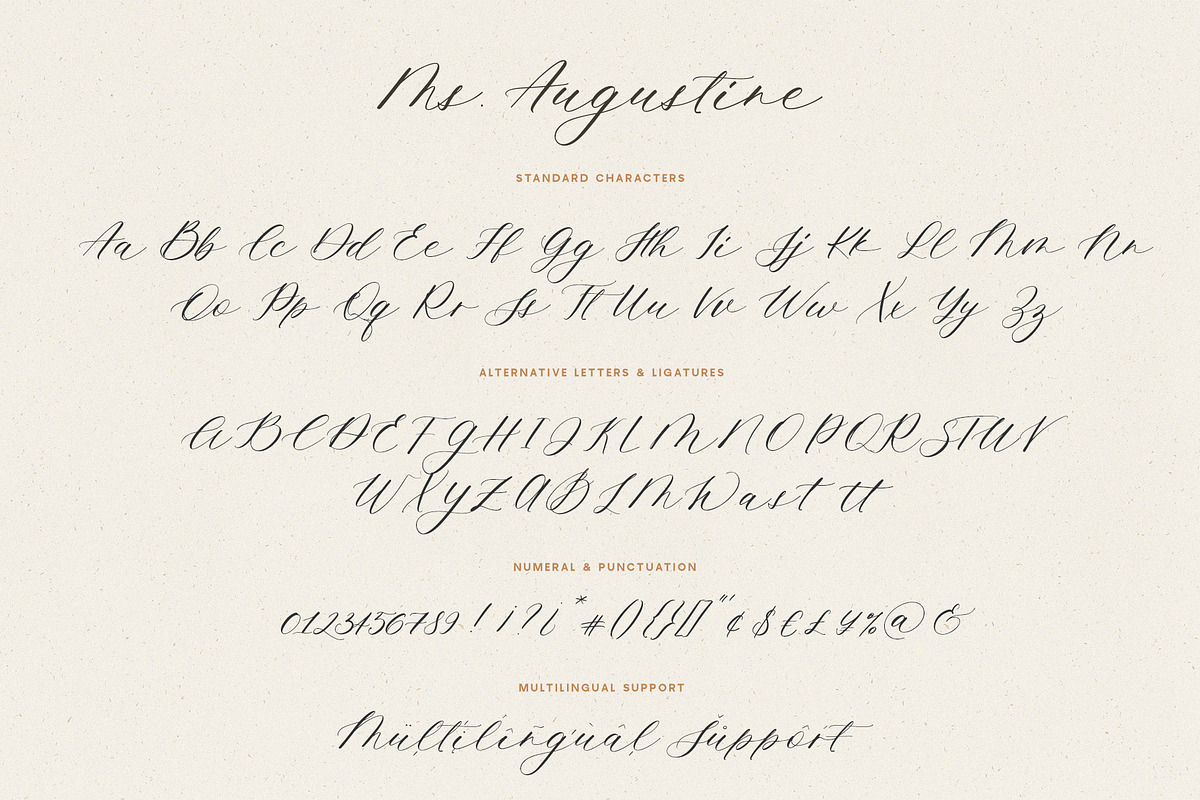 Ms. Augustine
STANDARD CHARACTERS
Aa Bb Cc Dd Ee Ff Gg Hh Ii Jj Kk Ll Mm Nn
Oo Pp Qq Rr Ss Tt Uu Vv Ww Xx Yy Zz
ALTERNATIVE LETTERS & LIGATURES
A B C D E F G H I J K L M N O P Q R S T U V
W X Y Z A B L M W a s t tt
NUMERAL & PUNCTUATION
0123456789 ! ¡ ? ¿ * # () {} [] " ' ¢ $ € £ ¥ % @ &
MULTILINGUAL SUPPORT
Mültílêñgùâl Šůppôrt